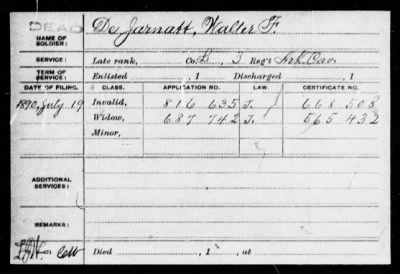 DEAD
NAME OF SOLDIER: De Jarnatt, Walter F.
SERVICE: Late rank, Co. L, 3 Reg't Ark. Cav.
TERM OF SERVICE: Enlisted , 1 Discharged , 1
DATE OF FILING. CLASS. APPLICATION NO. LAW. CERTIFICATE NO.
1890, July 19 Invalid, 816 635 J. 668 508
Widow, 687 742 J. 565 432
Minor,
ADDITIONAL SERVICES:
REMARKS:
Died , 1 , at